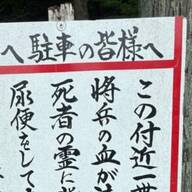 へ駐車の皆様へ
この付近一
将兵の血が
死者の霊に
尿便をし